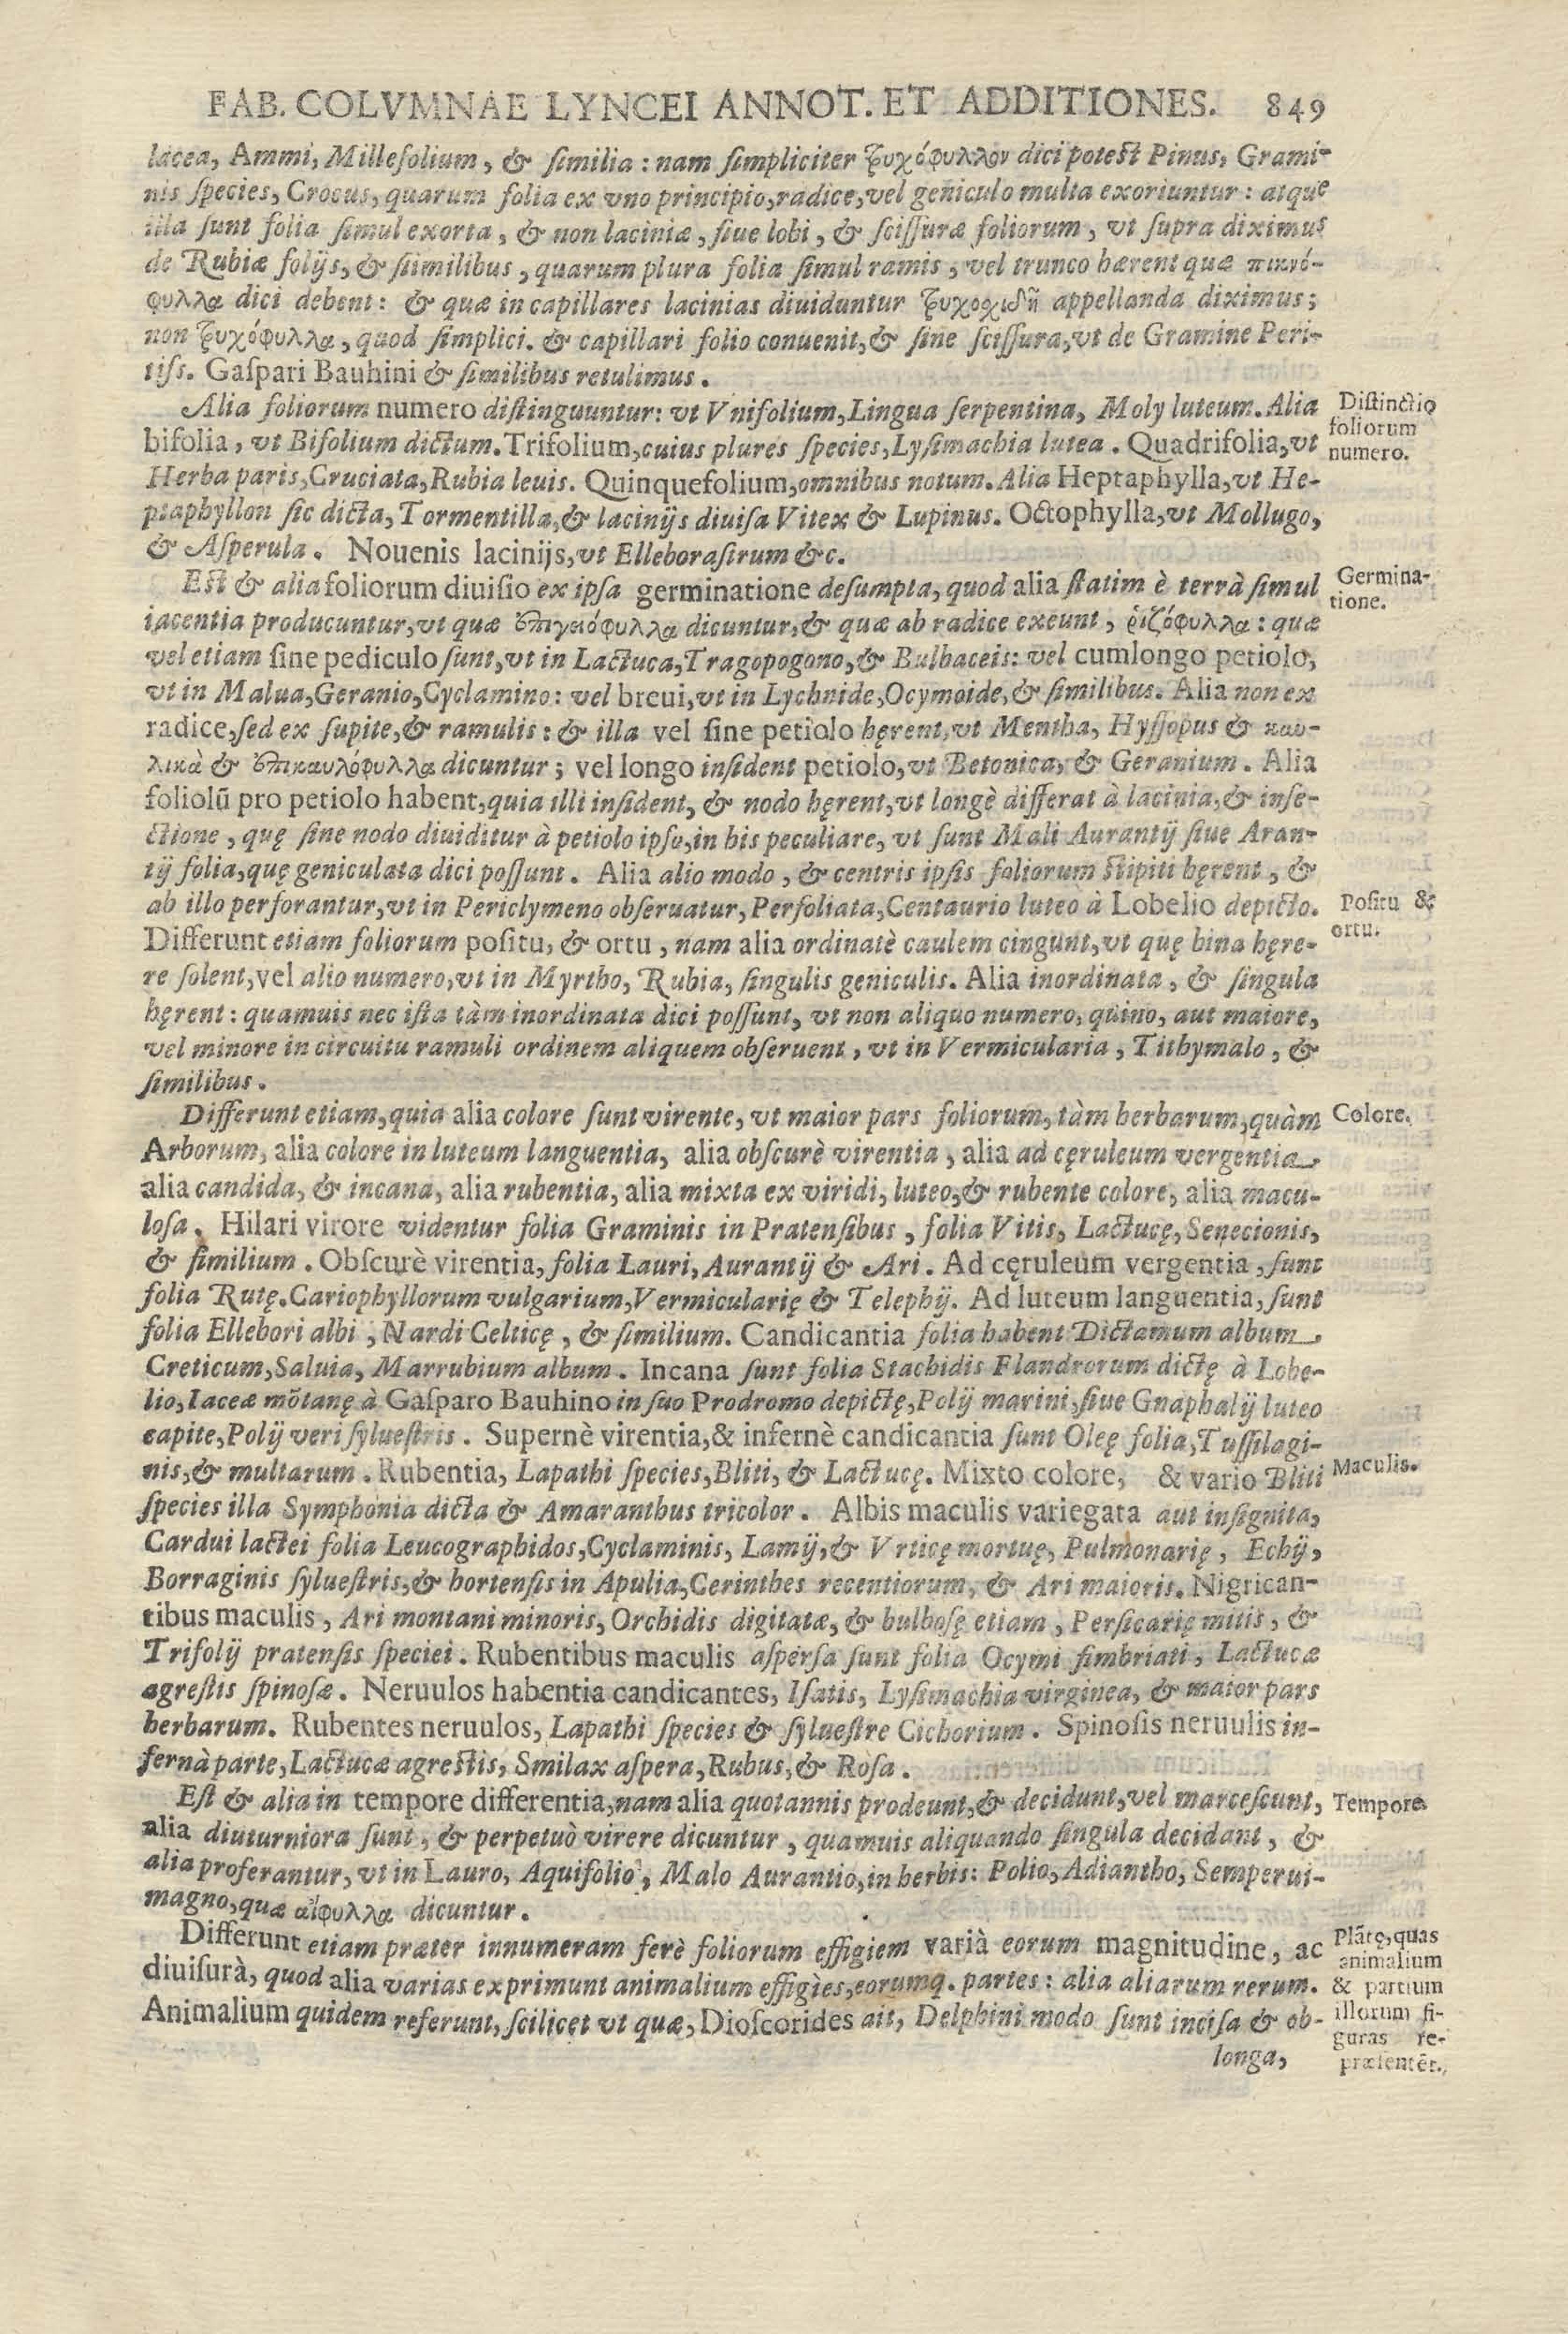 FAB. COLVMNAE LYNCEI ANNOT. ET ADDITIONES. 849
lacea, Ammi, Millefolium, & ſimilia: nam ſimpliciter τριχόφυλλον dici poteſt Pinus, Grami-
nis ſpecies, Crocus, quarum folia ex vno principio, radice, vel geniculo multa exoriuntur: atque
illa ſunt folia ſimul exorta, & non laciniæ, ſiue lobi, & ſciſſuræ foliorum, vt ſupra diximus
de Rubiæ folijs, & ſiimilibus, quarum plura folia ſimul ramis, vel trunco hærent quæ πυκνό-
φυλλα dici debent: & quæ in capillares lacinias diuiduntur appellanda diximus;
non τριχόφυλλα, quod ſimplici. & capillari folio conuenit, & ſine ſciſſura, vt de Gramine Peri-
tiſs. Gaſpari Bauhini & ſimilibus retulimus.
Alia foliorum numero diſtinguuntur: vt Vnifolium, Lingua ſerpentina, Moly luteum. Alia
Diſtinctio
foliorum
numero.
bifolia, vt Bifolium dictum. Trifolium, cuius plures ſpecies, Lyſimachia lutea. Quadrifolia, vt
Herba paris, Cruciata, Rubia leuis. Quinquefolium, omnibus notum. Alia Heptaphylla, vt He-
ptaphyllon ſic dicta, Tormentilla, & lacinijs diuiſa Vitex & Lupinus. Octophylla, vt Mollugo,
& Aſperula. Nouenis lacinijs, vt Elleboraſtrum &c.
Eſt & alia foliorum diuiſio ex ipſa germinatione deſumpta, quod alia ſtatim è terrà ſimul
Germina-
tione.
iacentia producuntur, vt quæ ἐπιγειόφυλλα dicuntur, & quæ ab radice exeunt, ῥιζόφυλλα: quæ
vel etiam ſine pediculo ſunt, vt in Lactuca, Tragopogono, & Bulbaceis: vel cumlongo petiolo,
vt in Malua, Geranio, Cyclamino: vel breui, vt in Lychnide, Ocymoide, & ſimilibus. Alia non ex
radice, ſed ex ſupite, & ramulis: & illa vel ſine petiolo hęrent, vt Mentha, Hyſſopus & καυ-
λικὰ & ἐπικαυλόφυλλα dicuntur; vel longo inſident petiolo, vt Betonica, & Geranium. Alia
foliolū pro petiolo habent, quia illi inſident, & nodo hęrent, vt longè differat à lacinia, & inſe-
ctione, quę ſine nodo diuiditur à petiolo ipſo, in his peculiare, vt ſunt Mali Aurantij ſiue Aran-
tij folia, quę geniculata dici poſſunt. Alia alio modo, & centris ipſis foliorum ſtipiti hęrent, &
ab illo perforantur, vt in Periclymeno obſeruatur, Perfoliata, Centaurio luteo à Lobelio depicto.
Poſitu &
ortu.
Differunt etiam foliorum poſitu, & ortu, nam alia ordinatè caulem cingunt, vt quę bina hęre-
re ſolent, vel alio numero, vt in Myrtho, Rubia, ſingulis geniculis. Alia inordinata, & ſingula
hęrent: quamuis nec iſta tàm inordinata dici poſſunt, vt non aliquo numero, quino, aut maiore,
vel minore in circuitu ramuli ordinem aliquem obſeruent, vt in Vermicularia, Tithymalo, &
ſimilibus.
Differunt etiam, quia alia colore ſunt virente, vt maior pars foliorum, tàm herbarum, quàm
Colore.
Arborum, alia colore in luteum languentia, alia obſcurè virentia, alia ad cęruleum vergentia,
alia candida, & incana, alia rubentia, alia mixta ex viridi, luteo, & rubente colore, alia macu-
loſa. Hilari virore videntur folia Graminis in Pratenſibus, folia Vitis, Lactucę, Senecionis,
& ſimilium. Obſcurè virentia, folia Lauri, Aurantij & Ari. Ad cęruleum vergentia, ſunt
folia Rutę. Cariophyllorum vulgarium, Vermicularię & Telephij. Ad luteum languentia, ſunt
folia Ellebori albi, Nardi Celticę, & ſimilium. Candicantia folia habent Dictamum album,
Creticum, Saluia, Marrubium album. Incana ſunt folia Stachidis Flandrorum dictę à Lobe-
lio, Iaceæ mōtanę à Gaſparo Bauhino in ſuo Prodromo depictę, Polij marini, ſiue Gnaphalij luteo
capite, Polij veri ſylueſtris. Supernè virentia, & infernè candicantia ſunt Oleę folia, Tuſſilagi-
nis, & multarum. Rubentia, Lapathi ſpecies, Bliti, & Lactucę. Mixto colore, & vario Bliti
Maculis.
ſpecies illa Symphonia dicta & Amaranthus tricolor. Albis maculis variegata aut inſignita,
Cardui lactei folia Leucographidos, Cyclaminis, Lamij, & Vrticę mortuę, Pulmonarię, Echij,
Borraginis ſylueſtris, & hortenſis in Apulia, Cerinthes recentiorum, & Ari maioris. Nigrican-
tibus maculis, Ari montani minoris, Orchidis digitatæ, & bulboſę etiam, Perſicarię mitis, &
Trifolij pratenſis ſpeciei. Rubentibus maculis aſperſa ſunt folia Ocymi fimbriati, Lactucæ
agreſtis ſpinoſæ. Neruulos habentia candicantes, Iſatis, Lyſimachia virginea, & maior pars
herbarum. Rubentes neruulos, Lapathi ſpecies & ſylueſtre Cichorium. Spinoſis neruulis in-
fernà parte, Lactucæ agreſtis, Smilax aſpera, Rubus, & Roſa.
Eſt & alia in tempore differentia, nam alia quotannis prodeunt, & decidunt, vel marceſcunt,
Tempore
alia diuturniora ſunt, & perpetuò virere dicuntur, quamuis aliquando ſingula decidant, &
alia proferantur, vt in Lauro, Aquifolio, Malo Aurantio, in herbis: Polio, Adiantho, Semperui-
magno, quæ ἀίφυλλα dicuntur.
Differunt etiam præter innumeram ferè foliorum effigiem varià eorum magnitudine, ac
diuiſurà, quod alia varias exprimunt animalium effigìes, eorumq. partes: alia aliarum rerum.
Animalium quidem referunt, ſcilicet vt quæ, Dioſcorides ait, Delphini modo ſunt inciſa & ob-
Plātę, quas
animalium
& partium
illorum fi-
guras re-
præſentēt.
longa,